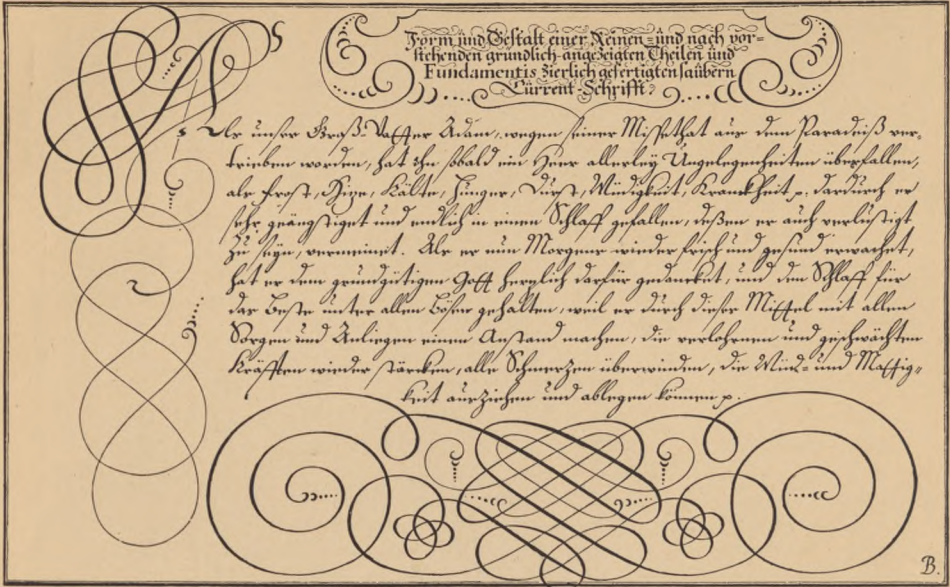 Form und Gestalt einer Reinen- und nach vor=
stehenden gründlich-angezeigten Theilen und
Fundamentis zierlich gefertigten saübern
Current-Schrifft.
Als unser Groß-Vatter Adam, wegen seiner Missethat aus dem Paradeiß ver=
trieben worden, hat ihn sobald ein Heer allerley Ungelegenheiten überfallen,
als Frost, Hitze, Kälte, Hunger, Durst, Müdigkeit, Kranckheit p. dardurch er
sehr geängstiget und endlich in einen Schlaff gefallen, deßen er auch verlüstigt
zu seyn, vermeinet. Als er nun Morgens wieder frisch und gesund erwachet,
hat er dem grundgütigen Gott hertzlich darfür gedancket, und den Schlaff für
das Beste unter allen Bösen gehalten, weil er durch dieses Mittel mit allen
Sorgen und Anliegen einen Anstand machen, die verlohrnen und geschwächten
Kräfften wieder stärcken, alle Schmertzen überwinden, die Müd- und Mattig=
keit ausziehen und ablegen können p.
B.